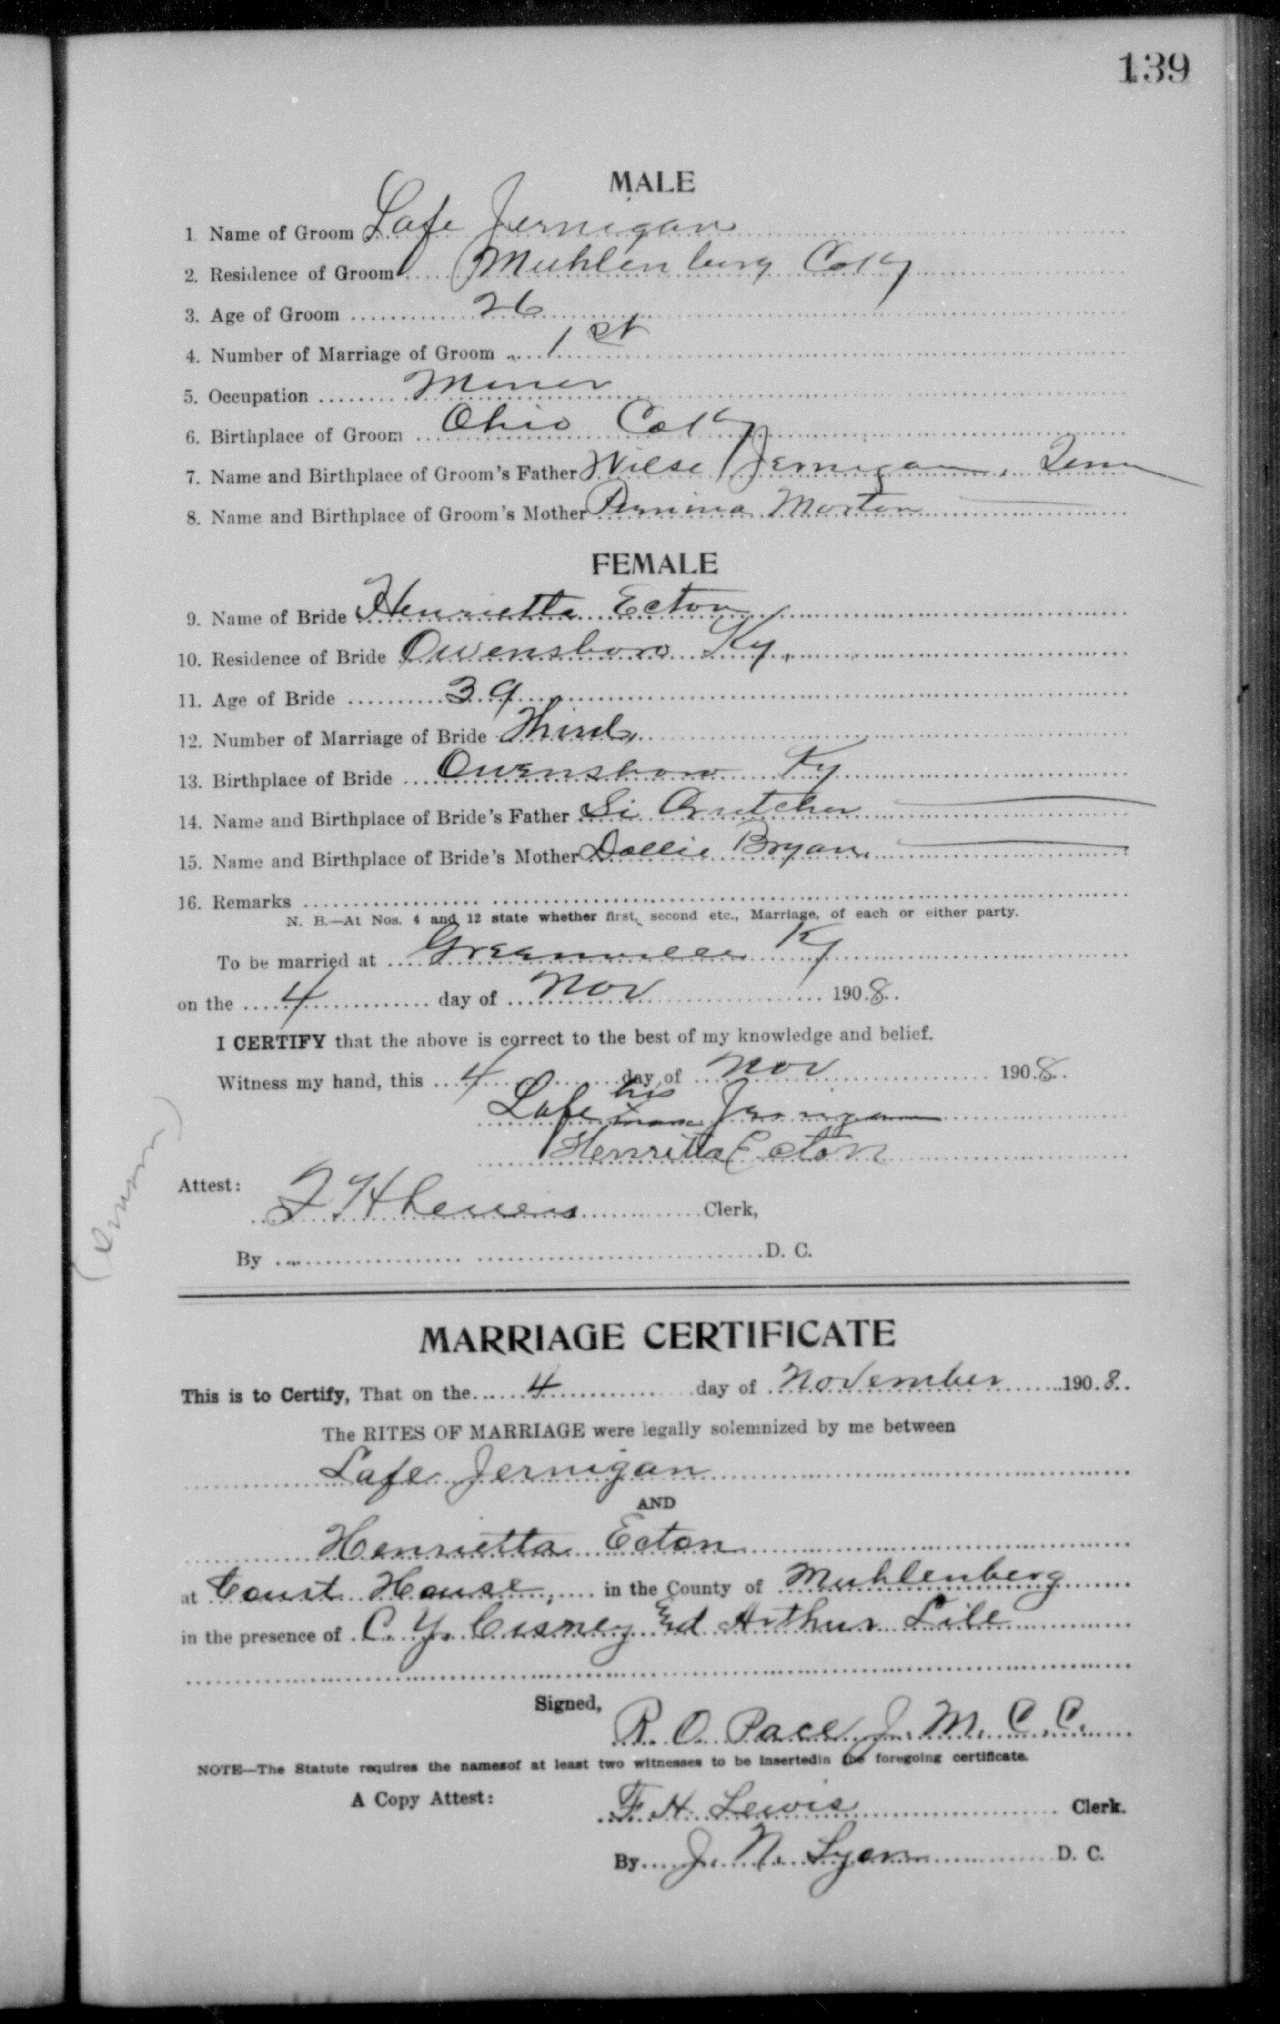 139
MALE
1. Name of Groom Lafe Jernigan
2. Residence of Groom Muhlenburg Co Ky
3. Age of Groom 26
4. Number of Marriage of Groom 1st
5. Occupation Miner
6. Birthplace of Groom Ohio Co Ky
7. Name and Birthplace of Groom's Father Wilse Jernigan, Tenn
8. Name and Birthplace of Groom's Mother Morton
FEMALE
9. Name of Bride Henrietta Ecton
10. Residence of Bride Owensboro Ky.
11. Age of Bride 39
12. Number of Marriage of Bride Third
13. Birthplace of Bride Owensboro Ky
14. Name and Birthplace of Bride's Father Si Crutcher
15. Name and Birthplace of Bride's Mother Dollie Bryan
16. Remarks
N. B.—At Nos. 4 and 12 state whether first, second etc., Marriage, of each or either party.
To be married at Greenville Ky
on the 4 day of Nov 1908
I CERTIFY that the above is correct to the best of my knowledge and belief.
Witness my hand, this 4 day of Nov 1908
his
Lafe x mark Jernigan
Henritta Ecton
Attest:
Clerk,
By D. C.
MARRIAGE CERTIFICATE
This is to Certify, That on the 4 day of November 1908
The RITES OF MARRIAGE were legally solemnized by me between
Lafe Jernigan
AND
Henrietta Ecton
at Court House, in the County of Muhlenberg
in the presence of C. Y. Cisney Arthur Lile
Signed, R. O. Pace J. M. C. C.
NOTE—The Statute requires the namesof at least two witnesses to be insertedin the foregoing certificate.
A Copy Attest: F. H. Lewis Clerk.
By J. N. Lyon D. C.